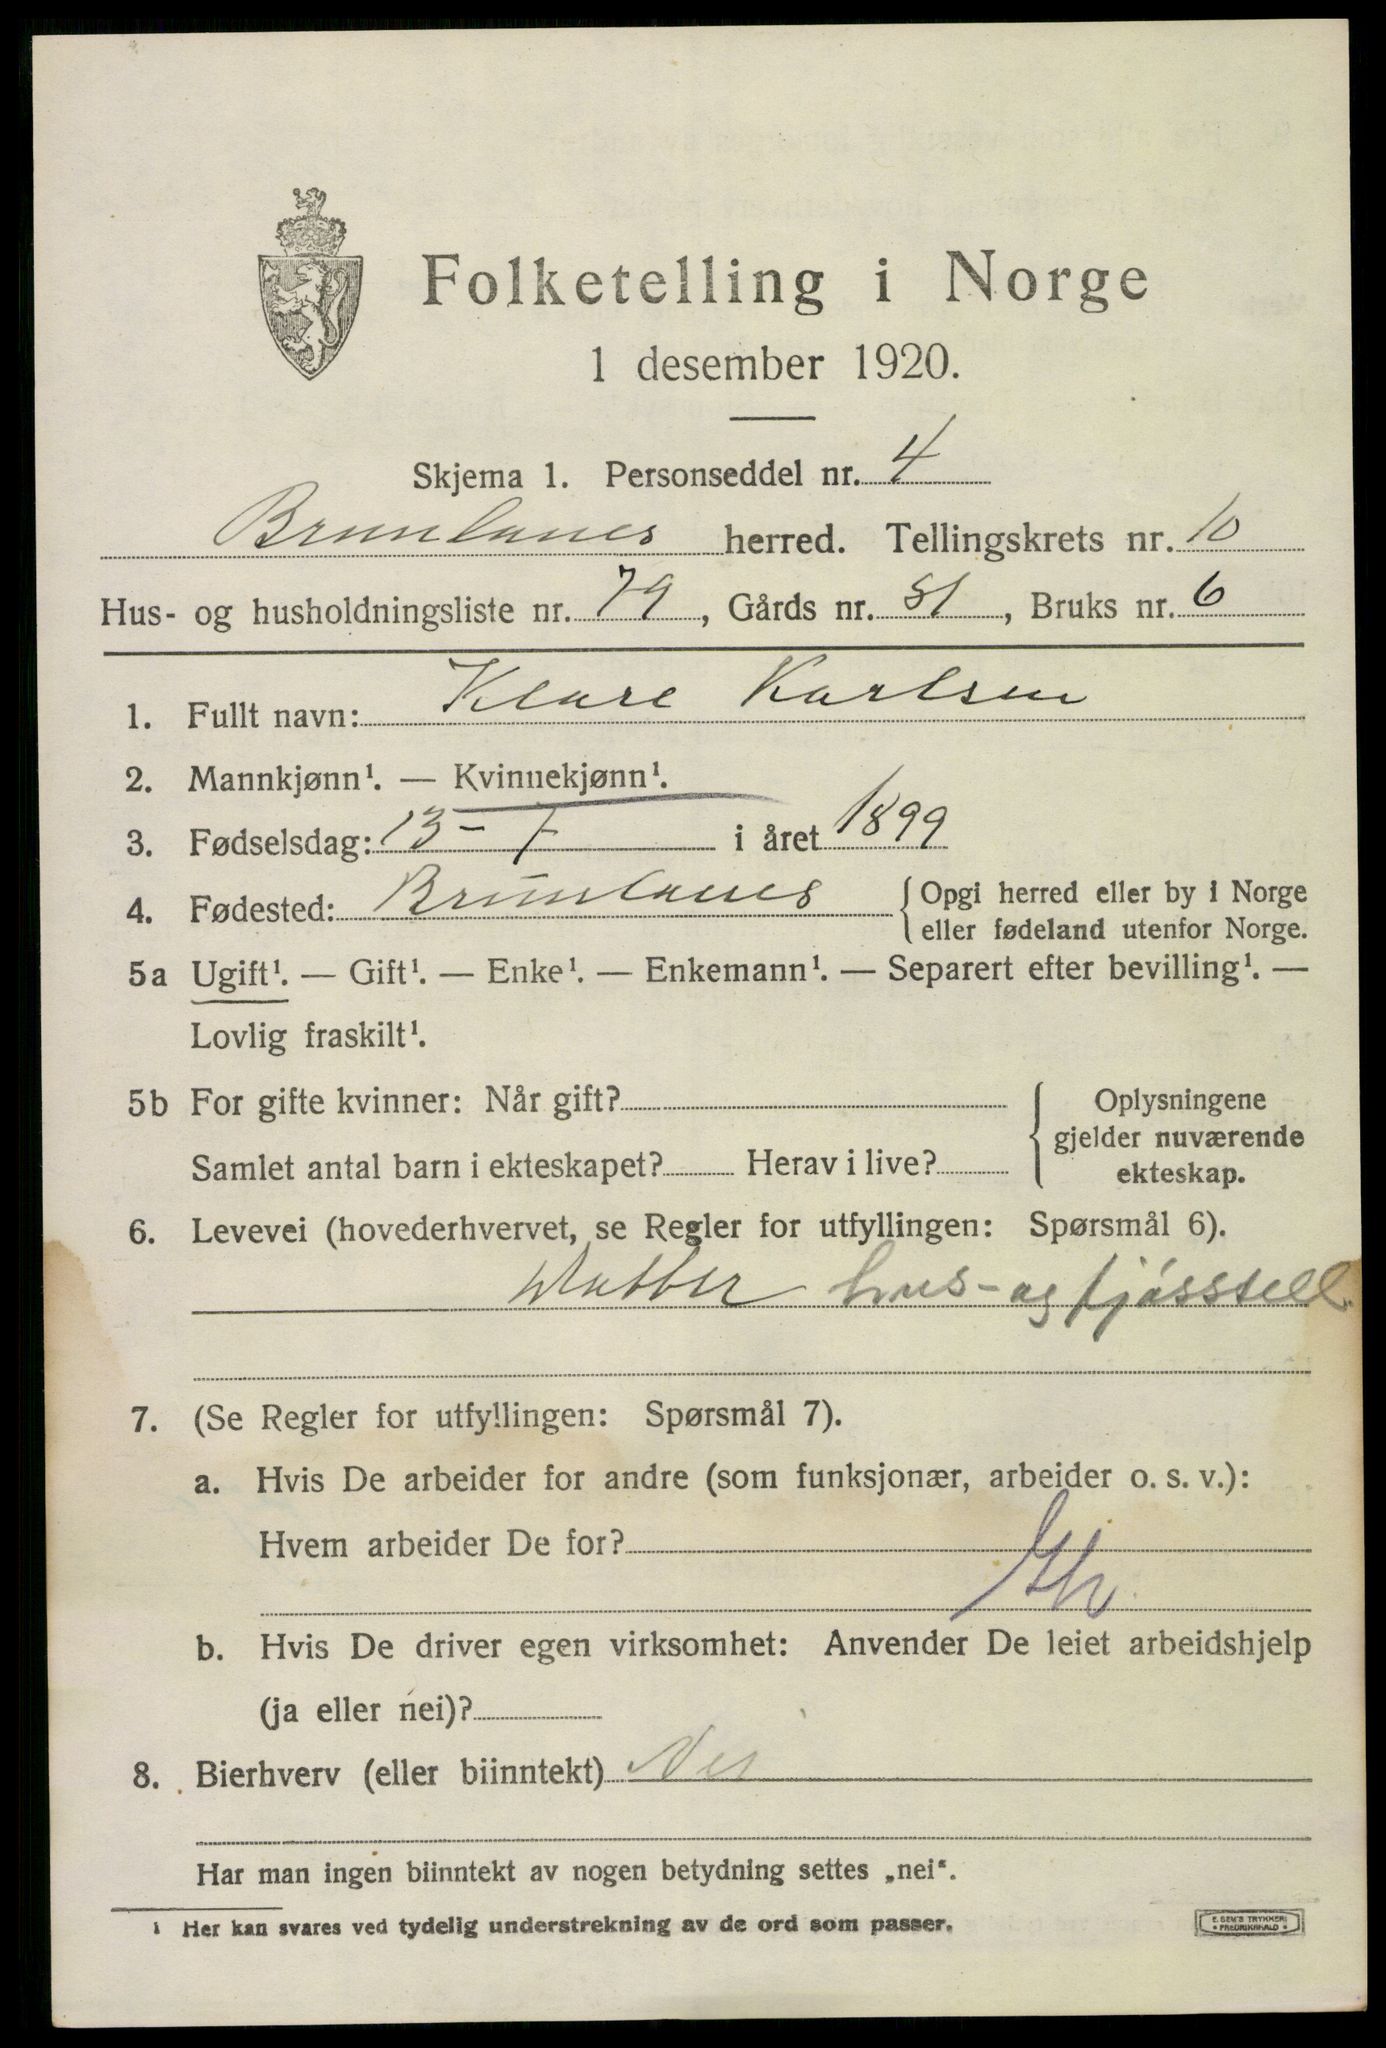 Folketelling i Norge
1 desember 1920.
Skjema 1. Personseddel nr. 4
Brunlanes herred. Tellingskrets nr. 10
Hus- og husholdningsliste nr. 79, Gårds nr. 81, Bruks nr. 6
1. Fullt navn: Klare Karlsen
2. Mannkjønn¹. — Kvinnekjønn¹.
3. Fødselsdag: 13 - 7 i året 1899
4. Fødested: Brunlanes {Opgi herred eller by i Norge
eller fødeland utenfor Norge.
5a Ugift¹. — Gift¹. — Enke¹. — Enkemann¹. — Separert efter bevilling¹. —
Lovlig fraskilt¹.
5b For gifte kvinner: Når gift?
Samlet antal barn i ekteskapet? Herav i live?
{Oplysningene
gjelder nuværende
ekteskap.
6. Levevei (hovederhvervet, se Regler for utfyllingen: Spørsmål 6).
hus- og fjósstell
7. (Se Regler for utfyllingen: Spørsmål 7).
a. Hvis De arbeider for andre (som funksjonær, arbeider o. s. v.):
Hvem arbeider De for?
b. Hvis De driver egen virksomhet: Anvender De leiet arbeidshjelp
(ja eller nei)?
8. Bierhverv (eller biinntekt) Nei
Har man ingen biinntekt av nogen betydning settes „nei“.
¹ Her kan svares ved tydelig understrekning av de ord som passer.
E. SEM'S TRYKKERI
FREDRIKSHALD